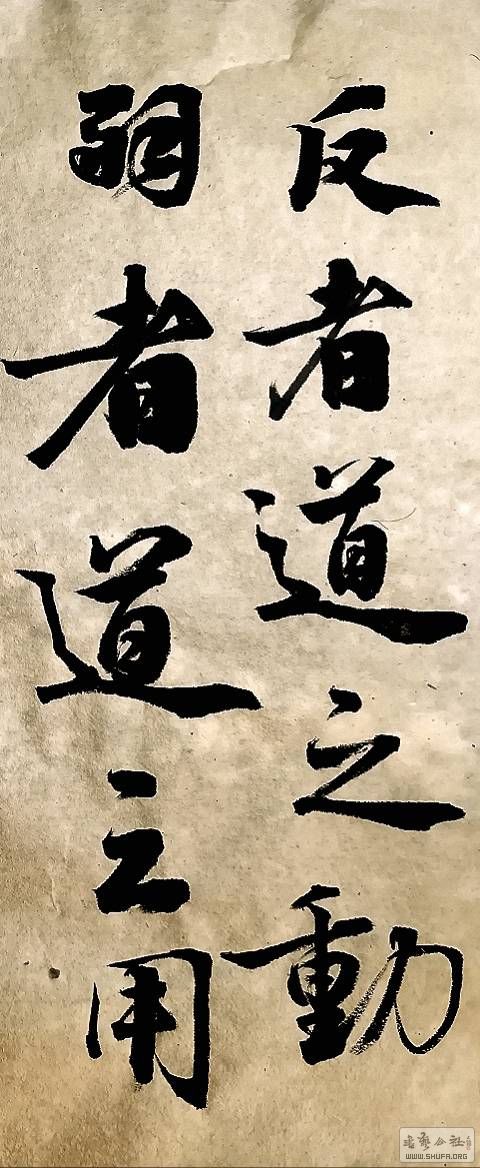 反者道之動
弱者道之用
書藝公社
WWW.SHUFA.ORG